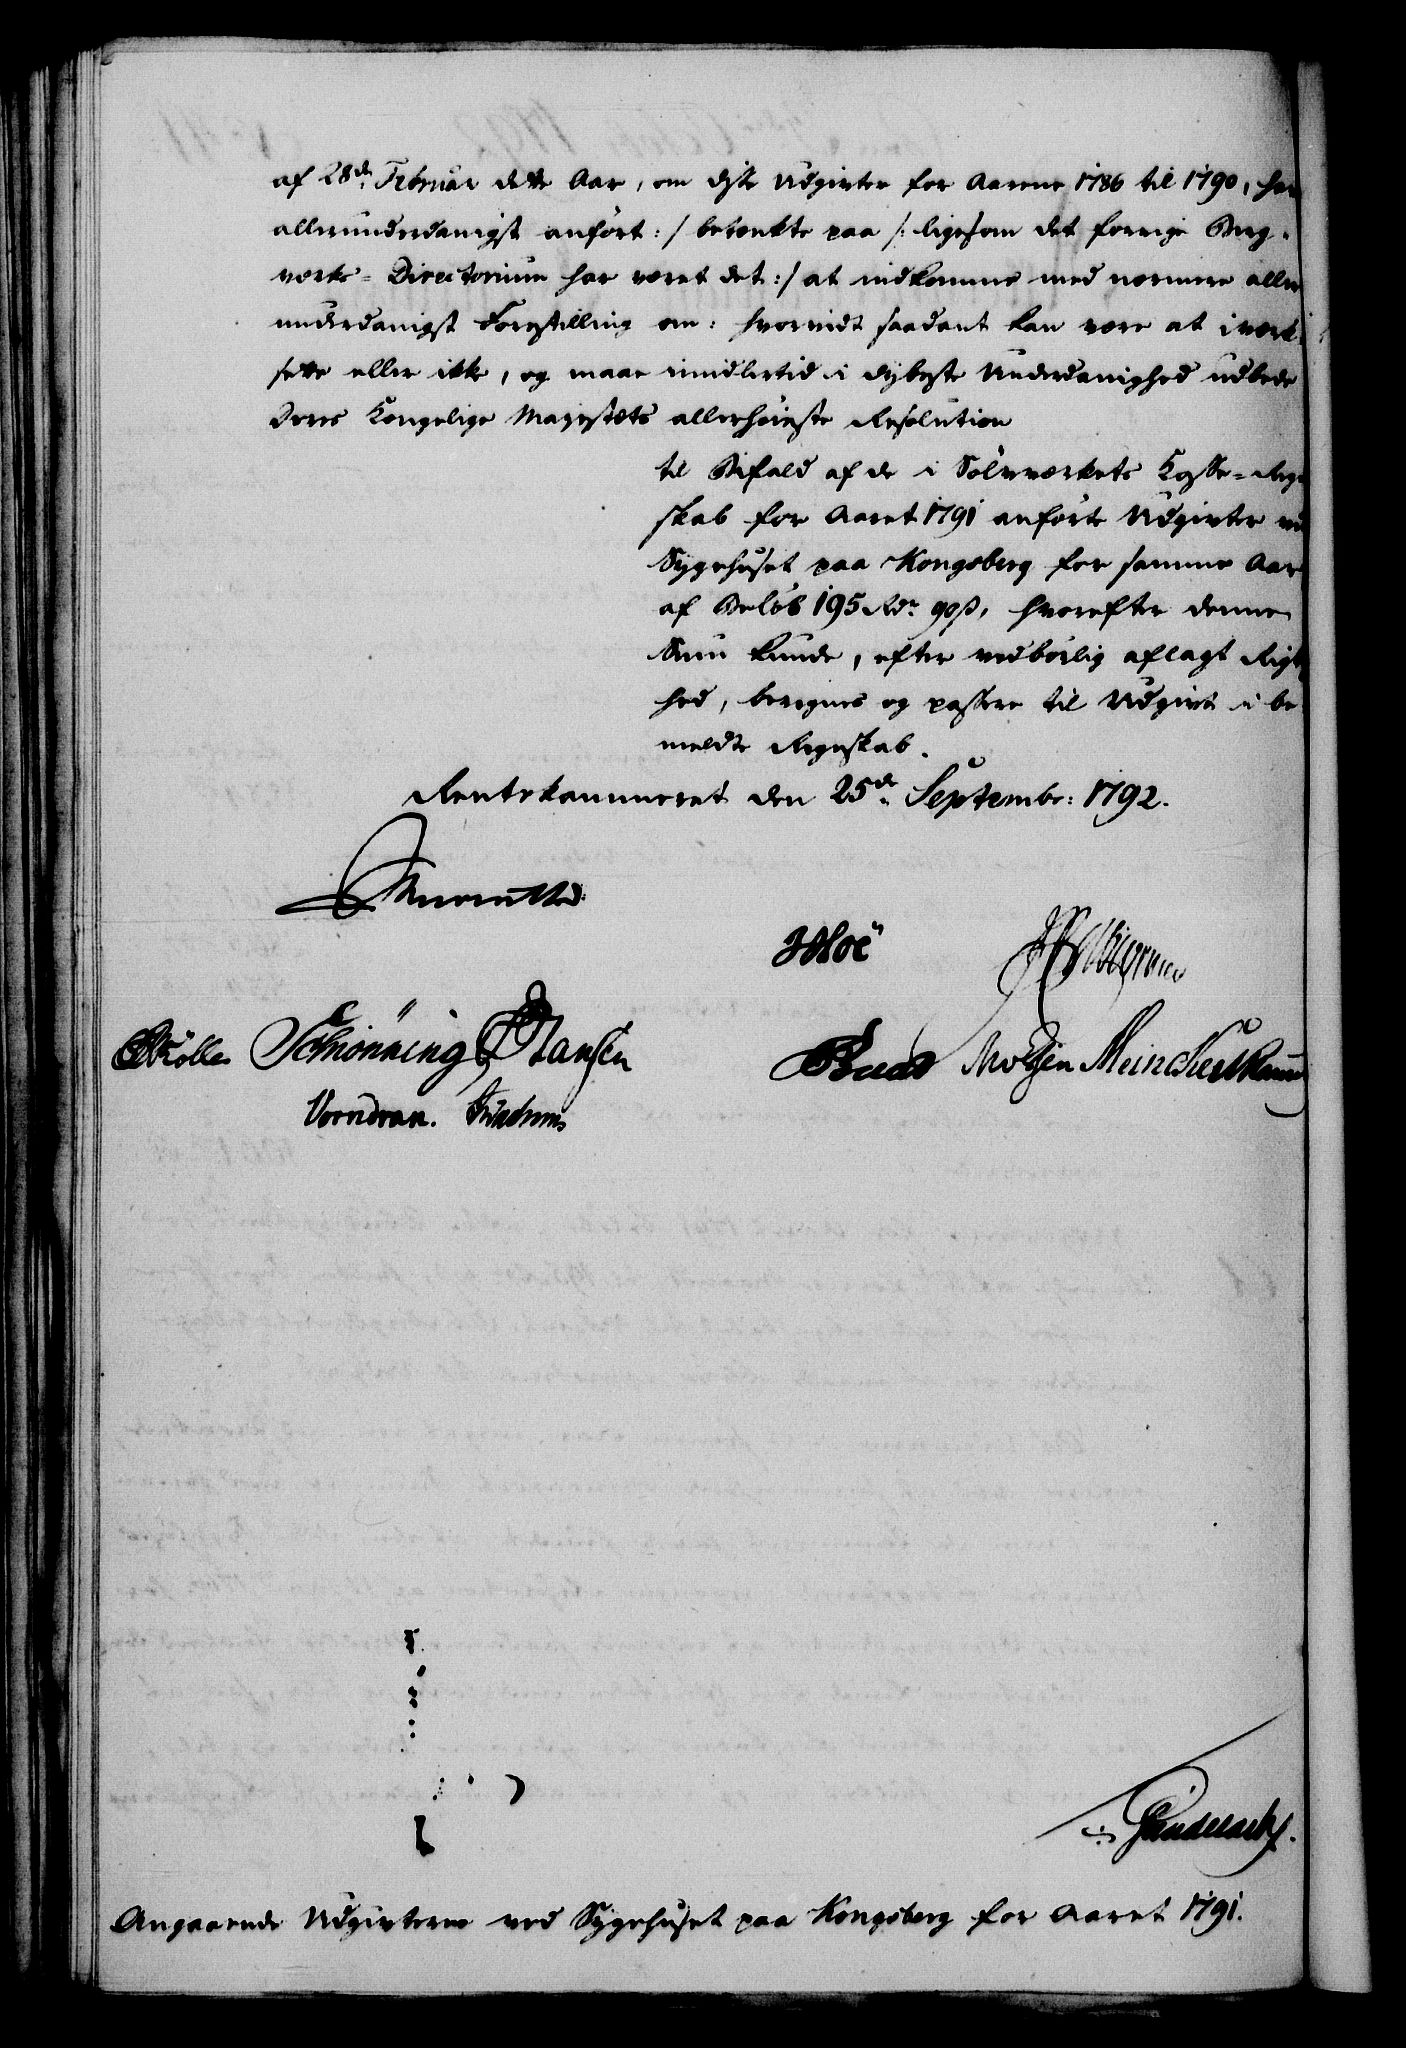 af 28de Februar dette Aar, om dyste Udgivter for Aarene 1786 til 1790, har
allerunderdanigst anført :/ betænkte paa /: ligesom det forrige Berg-
verks-Directorium har været det :/ at indkomme med nærmere aller
underdanigst Forestilling om: hvorvidt saadant kan være at iværk-
sette eller ikke, og maae imidlertid i dybeste Underdanighed udbede
Deres Kongelige Majestæts allerhøieste Resolution
til Bifald af de i Sølvværkets Casse-Regn
skab for Aaret 1791 anførte Udgivter ved
Sygehuset paa Kongsberg for samme Aar
af Beløb 195 Rdr 90 ß, hvorefter denne
Sum kunde, efter vedbørlig aflagt Rigtig
hed, beregnes og passere til Udgivt i be-
meldte Regnskab.
Rentekammeret den 25de Septembr: 1792.
JHoë
Schiönning Hansen
Bade Moltzen Meincke
Vorndran.
Angaaende Udgivterne ved Sygehuset paa Kongsberg for Aaret 1791.